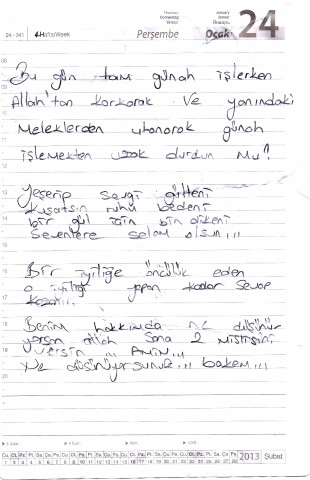 24 - 341
4.Hafta/Week
Thursday
Donnerstag
Perşembe
January
Januar
Январь
Ocak
24
09
Bu gün tam günah işlerken
Allah'tan korkarak ve yanındaki
Meleklerden utanarak günah
işlemekten uzak durdun mu?
13
Yeşerip sevgi
14
Kuşatsın ruhu bedeni
bir gül için bin dikeni
15
Sevenlere selam olsun,,,
16
Bir iyiliğe öncülük eden
17
o iyiliği yapan kadar sevap
18
Benim hakkımda ne düşünür
19
yorsan Allah sana 2 mislisini
versin ,,, Amin,,,
20
Ne düşünüyorsunuz,,, bakem,,,
2013 Şubat